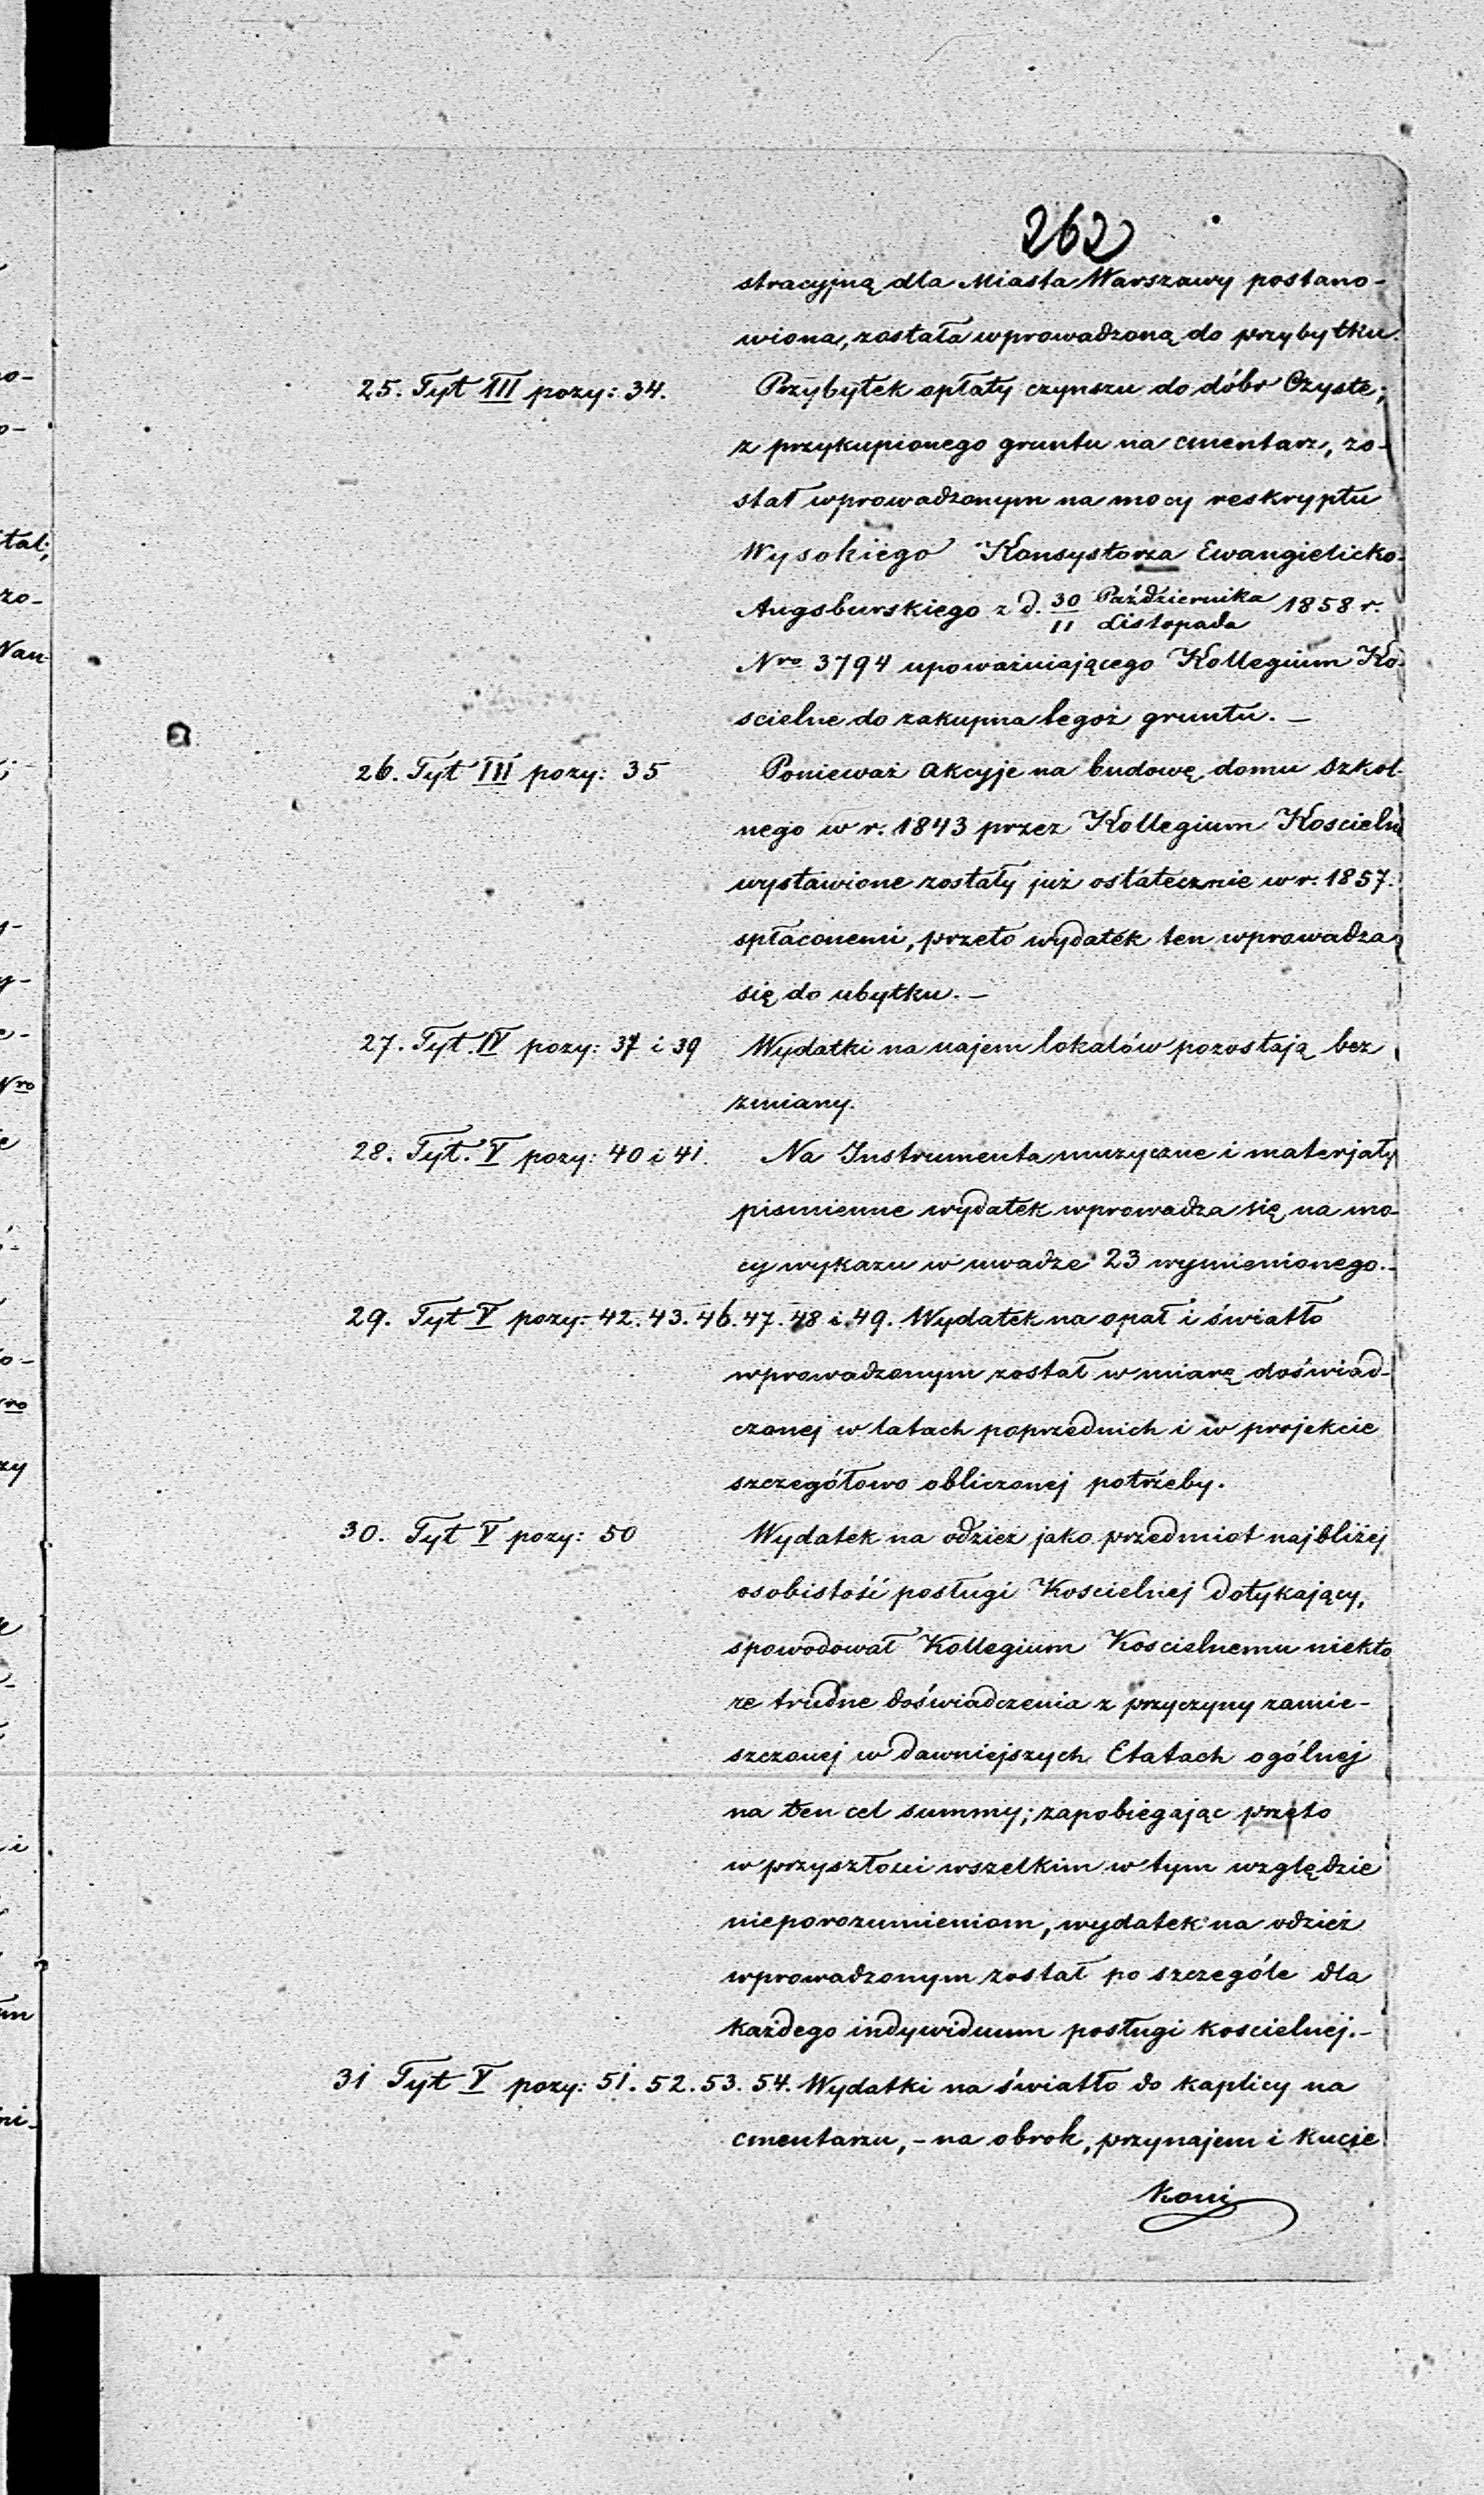 262
stracyjną dla Miasta Warszawy postano-
wiona, została wprowadzoną do przybytku.
25. Tyt III pozy: 34. Przybytek opłaty czynszu do dóbr Czyste;
z przykupionego gruntu na cmentarz, zo-
stał wprowadzonym na mocy reskryptu
Wysokiego Konsystorza Ewangielicko-
Augsburskiego z d. 30 Października / 11 Listopada 1858 r.
Nro 3794 upoważniającego Kollegium Ko-
scielne do zakupna tegoż gruntu. —
26. Tyt III pozy: 35 Ponieważ Akcyje na budowę domu szkol-
nego w r. 1843 przez Kollegium Koscieln
wystawione zostały już ostatecznie w r. 1857.
spłaconemi, przeto wydatek ten wprowadza
się do ubytku. —
27. Tyt. IV pozy: 37 i 39 Wydatki na najem lokalów pozostają bez
zmiany.
28. Tyt. V pozy: 40 i 41. Na Instrumenta muzyczne i materjały
pismienne wydatek wprowadza się na mo-
cy wykazu w uwadze 23 wymienionego. -
29. Tyt V pozy: 42. 43. 46. 47. 48 i 49. Wydatek na opał i światło
wprowadzonym został w miarę doświad-
czonej w latach poprzednich i w projekcie
szczegółowo obliczonej potrzeby.
30. Tyt V pozy: 50 Wydatek na odzież jako przedmiot najbliżej
osobistość posługi Koscielnej dotykający,
spowodował Kollegium Koscielnemu niektó
re trudne doświadczenia z przyczyny zamie-
szczonej w dawniejszych Etatach ogólnej
na ten cel summy; zapobiegając przeto
w przyszłości wszelkim w tym względzie
nieporozumieniom, wydatek na odzież
wprowadzonym został po szczególe dla
każdego indywiduum posługi koscielnej. -
31 Tyt V pozy: 51. 52. 53. 54. Wydatki na światło do kaplicy na
cmentarzu, - na obrok, przynajem i kucie
Koni